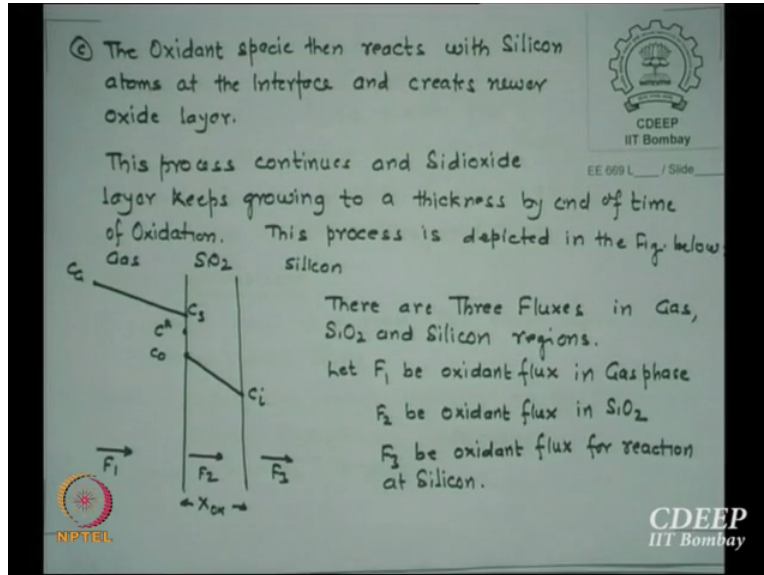 © The Oxidant specie then reacts with Silicon
atoms at the Interface and creates newer
oxide layer.
CDEEP
IIT Bombay
EE 669 L___ / Slide___
This process continues and Sidioxide
layer keeps growing to a thickness by end of time
of Oxidation. This process is depicted in the Fig. below:
Gas SiO2 Silicon
CG
Cs
C*
Co
Ci
F1 F2 F3
Xox
There are Three Fluxes in Gas,
SiO2 and Silicon regions.
Let F1 be oxidant flux in Gas phase
F2 be oxidant flux in SiO2
F3 be oxidant flux for reaction
at Silicon.
NPTEL
CDEEP
IIT Bombay